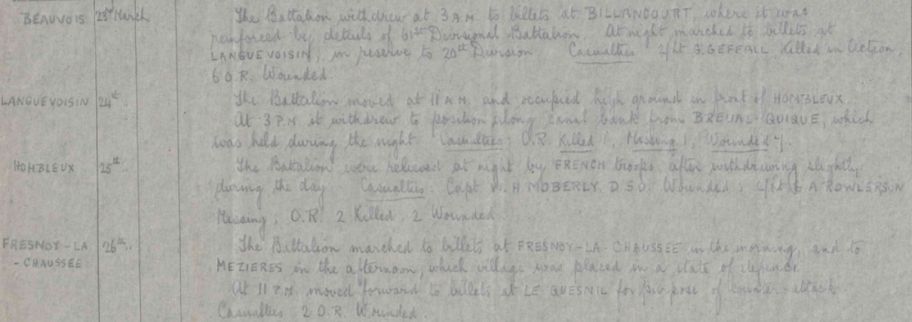 BEAUVOIS 23rd March The Battalion withdrew at 3 A.M. to billets at BILLANCOURT, where it was
reinforced by details of 61st Divisional Battalion. At night marched to billets at
LANGUEVOISIN, in reserve to 20th Division Casualties 2/Lt G. GEFEALL Killed in Action,
6 O.R. Wounded.
LANGUEVOISIN 24th The Battalion moved at 11 A.M. and occupied high ground in front of HOMBLEUX.
At 3 P.M. it withdrew to position along canal bank from BREUAL-QUIQUE, which
was held during the night Casualties; O.R. Killed 1, Missing 1, Wounded 7.
HOMBLEUX 25th The Battalion were relieved at night by FRENCH troops, after withdrawing slightly
during the day Casualties: Capt W. H MOBERLY. D.S.O. Wounded; 2/Lt A ROWLERSON
Missing; O.R. 2 Killed, 2 Wounded
FRESNOY-LA-CHAUSSEE 26th. The Battalion marched to billets at FRESNOY-LA-CHAUSSEE in the morning, and to
MEZIERES in the afternoon, which village was placed in a state of defence.
At 11 P.M. moved forward to billets at LE QUESNIL for purpose of counter-attack
Casualties 2 O.R Wounded.